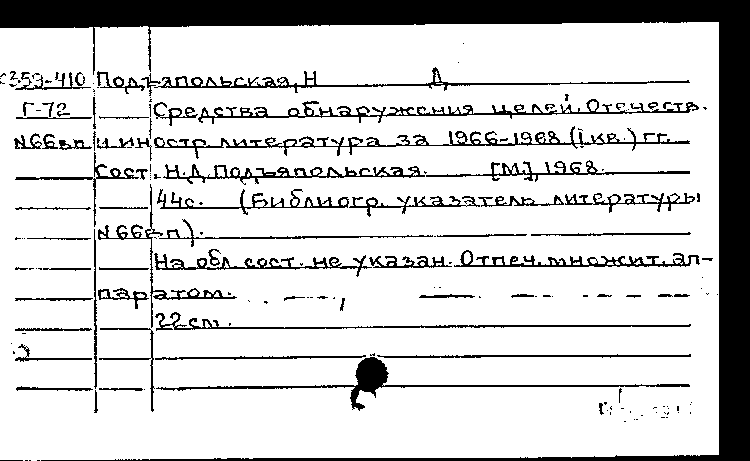 359-410 Подъяпольская, Н Д.
Г-72 Средства обнаружения целей. Отечеств.
N66вп и иностр. литература за 1966-1968 (I кв.) гг.
Сост. Н.Д. Подъяпольская. [М.], 1968.
44с. (Библиогр. указатель литературы
N66вп).
На обл. сост. не указан. Отпеч. множит. ап-
паратом.
22 см.